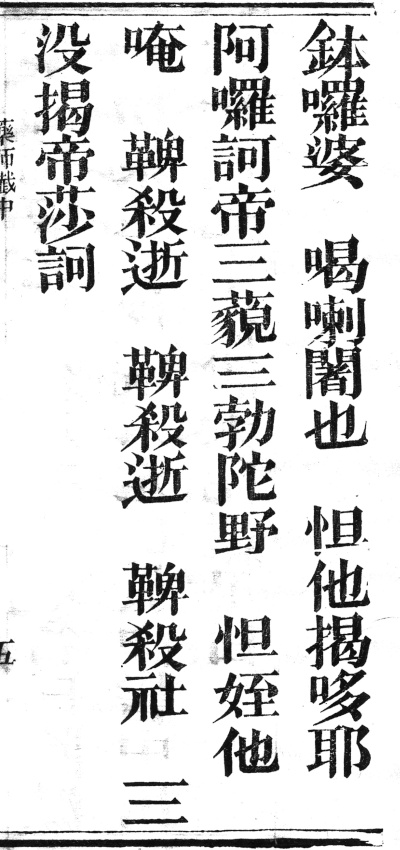 鉢囉婆　喝喇闍也　怛他揭哆耶
阿囉訶帝三藐三勃陀野　怛姪他
唵　鞞殺逝　鞞殺逝　鞞殺社　三
没揭帝莎訶
藥師懺中
五